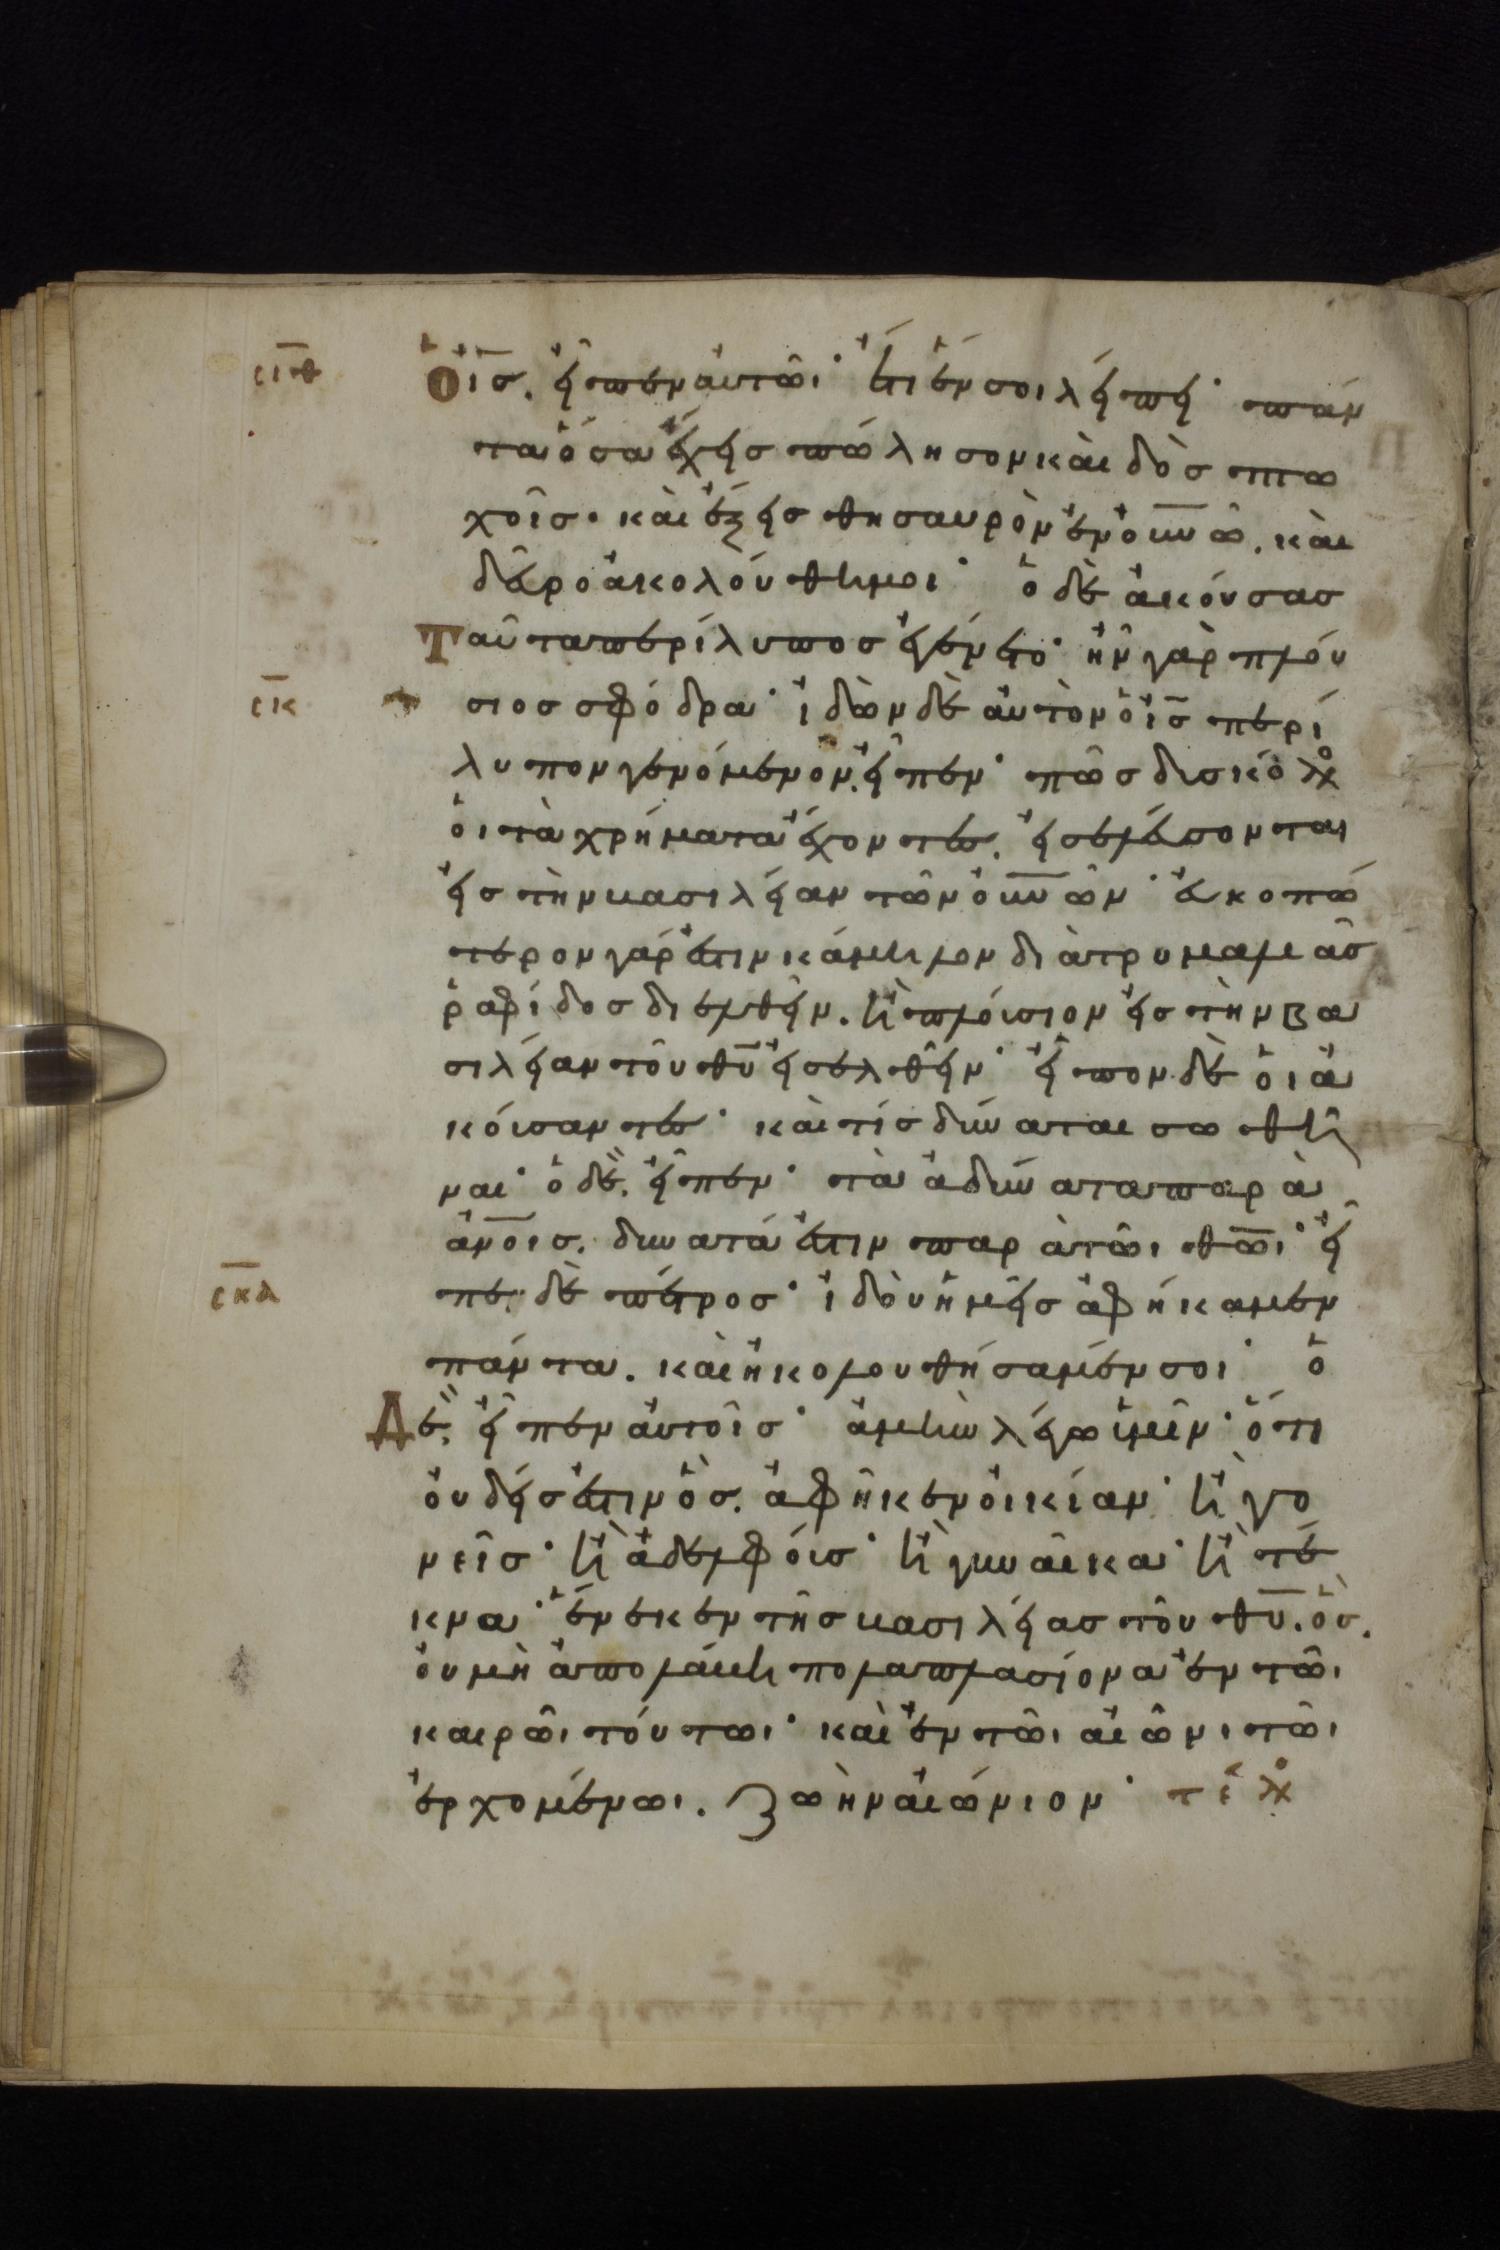 σιθ ὁ ις. εἶπεν αὐτῶι· ἔτι ἕν σοι λείπει· πάν
τα ὅσα ἔχεις πώλησον καὶ δὸς πτω
χοῖς· καὶ ἕξεις θησαυρὸν ἐν ουνῶ. καὶ
δεῦρο ἀκολούθει μοι· ὁ δὲ ἀκούσας
ταῦτα περίλυπος ἐγένετο· ἦν γὰρ πλού
σκ σιος σφόδρα· ἰδὼν δὲ αὐτὸν ὁ ις περί
λυπον γενόμενον. εἶπεν· πῶς δυσκόλως
οἱ τὰ χρήματα ἔχοντες. εἰσελεύσονται
εἰς τὴν βασιλείαν τῶν ουνῶν· εὐκοπώ
τερον γάρ ἐστιν κάμηλον διὰ τρυμαλιᾶς
ῥαφίδος διελθεῖν. ἢ πλούσιον εἰς τὴν βα
σιλείαν τοῦ θυ εἰσελθεῖν· εἶπον δὲ οἱ ἀ
κούσαντες· καὶ τίς δύναται σωθῆ
ναι· ὁ δὲ. εἶπεν· τὰ ἀδύνατα παρὰ
ἀνοις. δυνατά ἐστιν παρὰ τῶι θωι· εἶ
σκα πε. δὲ πέτρος· ἰδοὺ ἡμεῖς ἀφήκαμεν
πάντα. καὶ ἠκολουθήσαμέν σοι· ὁ
δὲ. εἶπεν αὐτοῖς· ἀμὴν λέγω ὑμῖν· ὅτι
οὐδείς ἐστιν ὃς. ἀφῆκεν οἰκίαν· ἢ γο
νεῖς· ἢ ἀδελφούς· ἢ γυναῖκα· ἢ τέ
κνα· ἕνεκεν τῆς βασιλείας τοῦ θυ. ὃς.
οὐ μὴ ἀπολάβη πολαπλασίονα ἐν τῶι
καιρῶι τούτωι· καὶ ἐν τῶι αἰῶνι τῶι
ἐρχομένωι. ζωὴν αἰώνιον· τέλος